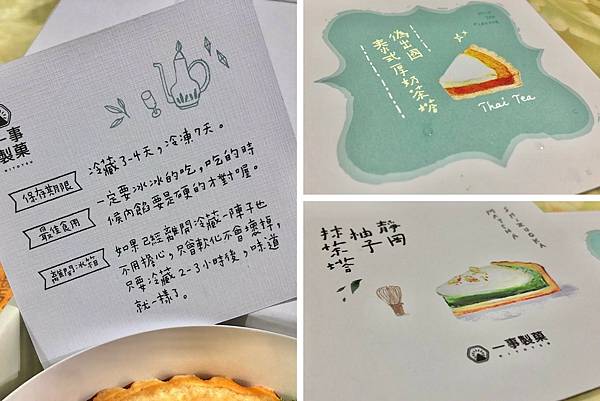 一事
製菓
HITOTEN
保存期限
冷藏3-4天，冷凍7天。
最佳食用
一定要冰冰的吃，吃的時
候內餡要是硬的才對喔。
離開冰箱
如果已經離開冷藏一陣子也
不用擔心，只會軟化不會壞掉，
只要冷藏2-3小時後，味道
就一樣了。
偽出國
泰式厚奶茶塔
Thai Tea
靜岡
柚子
抹茶塔
SHIZUOKA
MATCHA
一事製菓